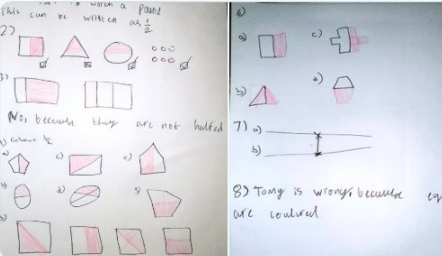 is worth a pound
This can be written as 1/2
2)
3)
No, because they are not halfed
colour 1/2
a) c) e)
b) d)
6)
a) c)
b)
7) a)
b)
8) Tomy is wrong, because
are coulored